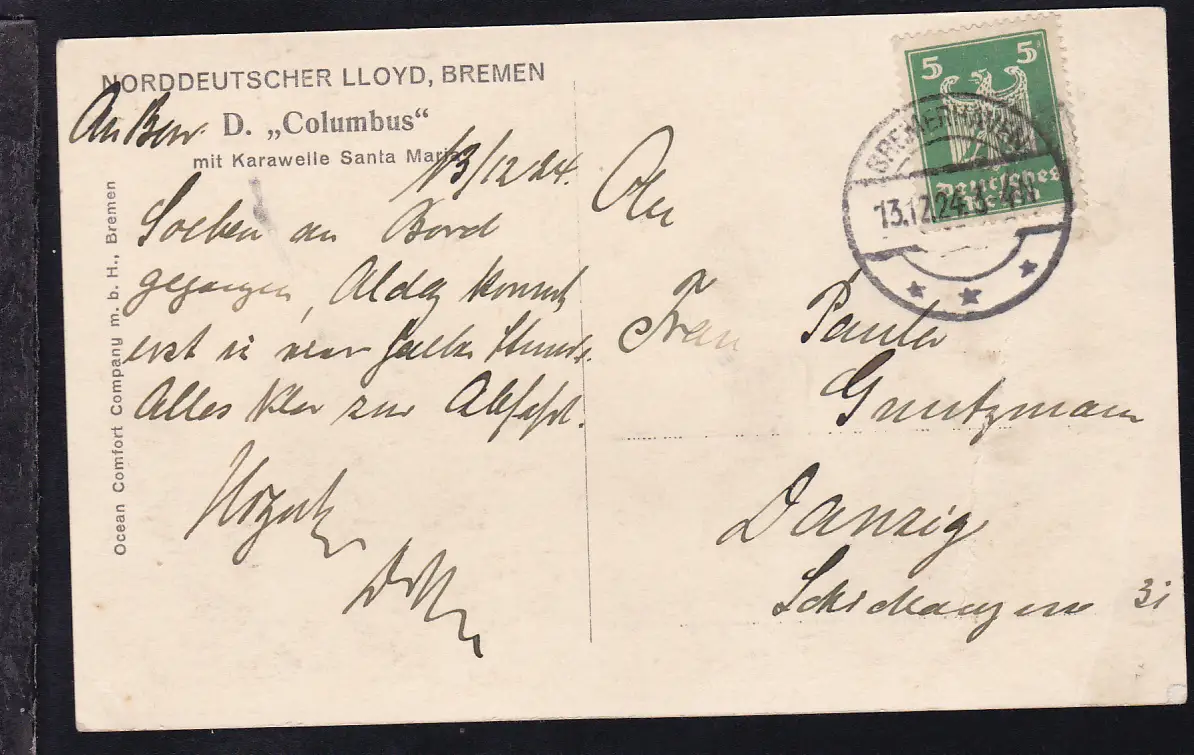 NORDDEUTSCHER LLOYD, BREMEN
D. „Columbus“
mit Karawelle Santa Maria
An Bord
13/12 24.
Soeben an Bord
gegangen, kommt
erst in einer halben Stunde.
Alles klar zur Abfahrt.
Ocean Comfort Company m. b. H., Bremen
5 5
Deutsches
BREMERHAVEN
13.12.24. 3-4N
An
Frau Paula
Danzig